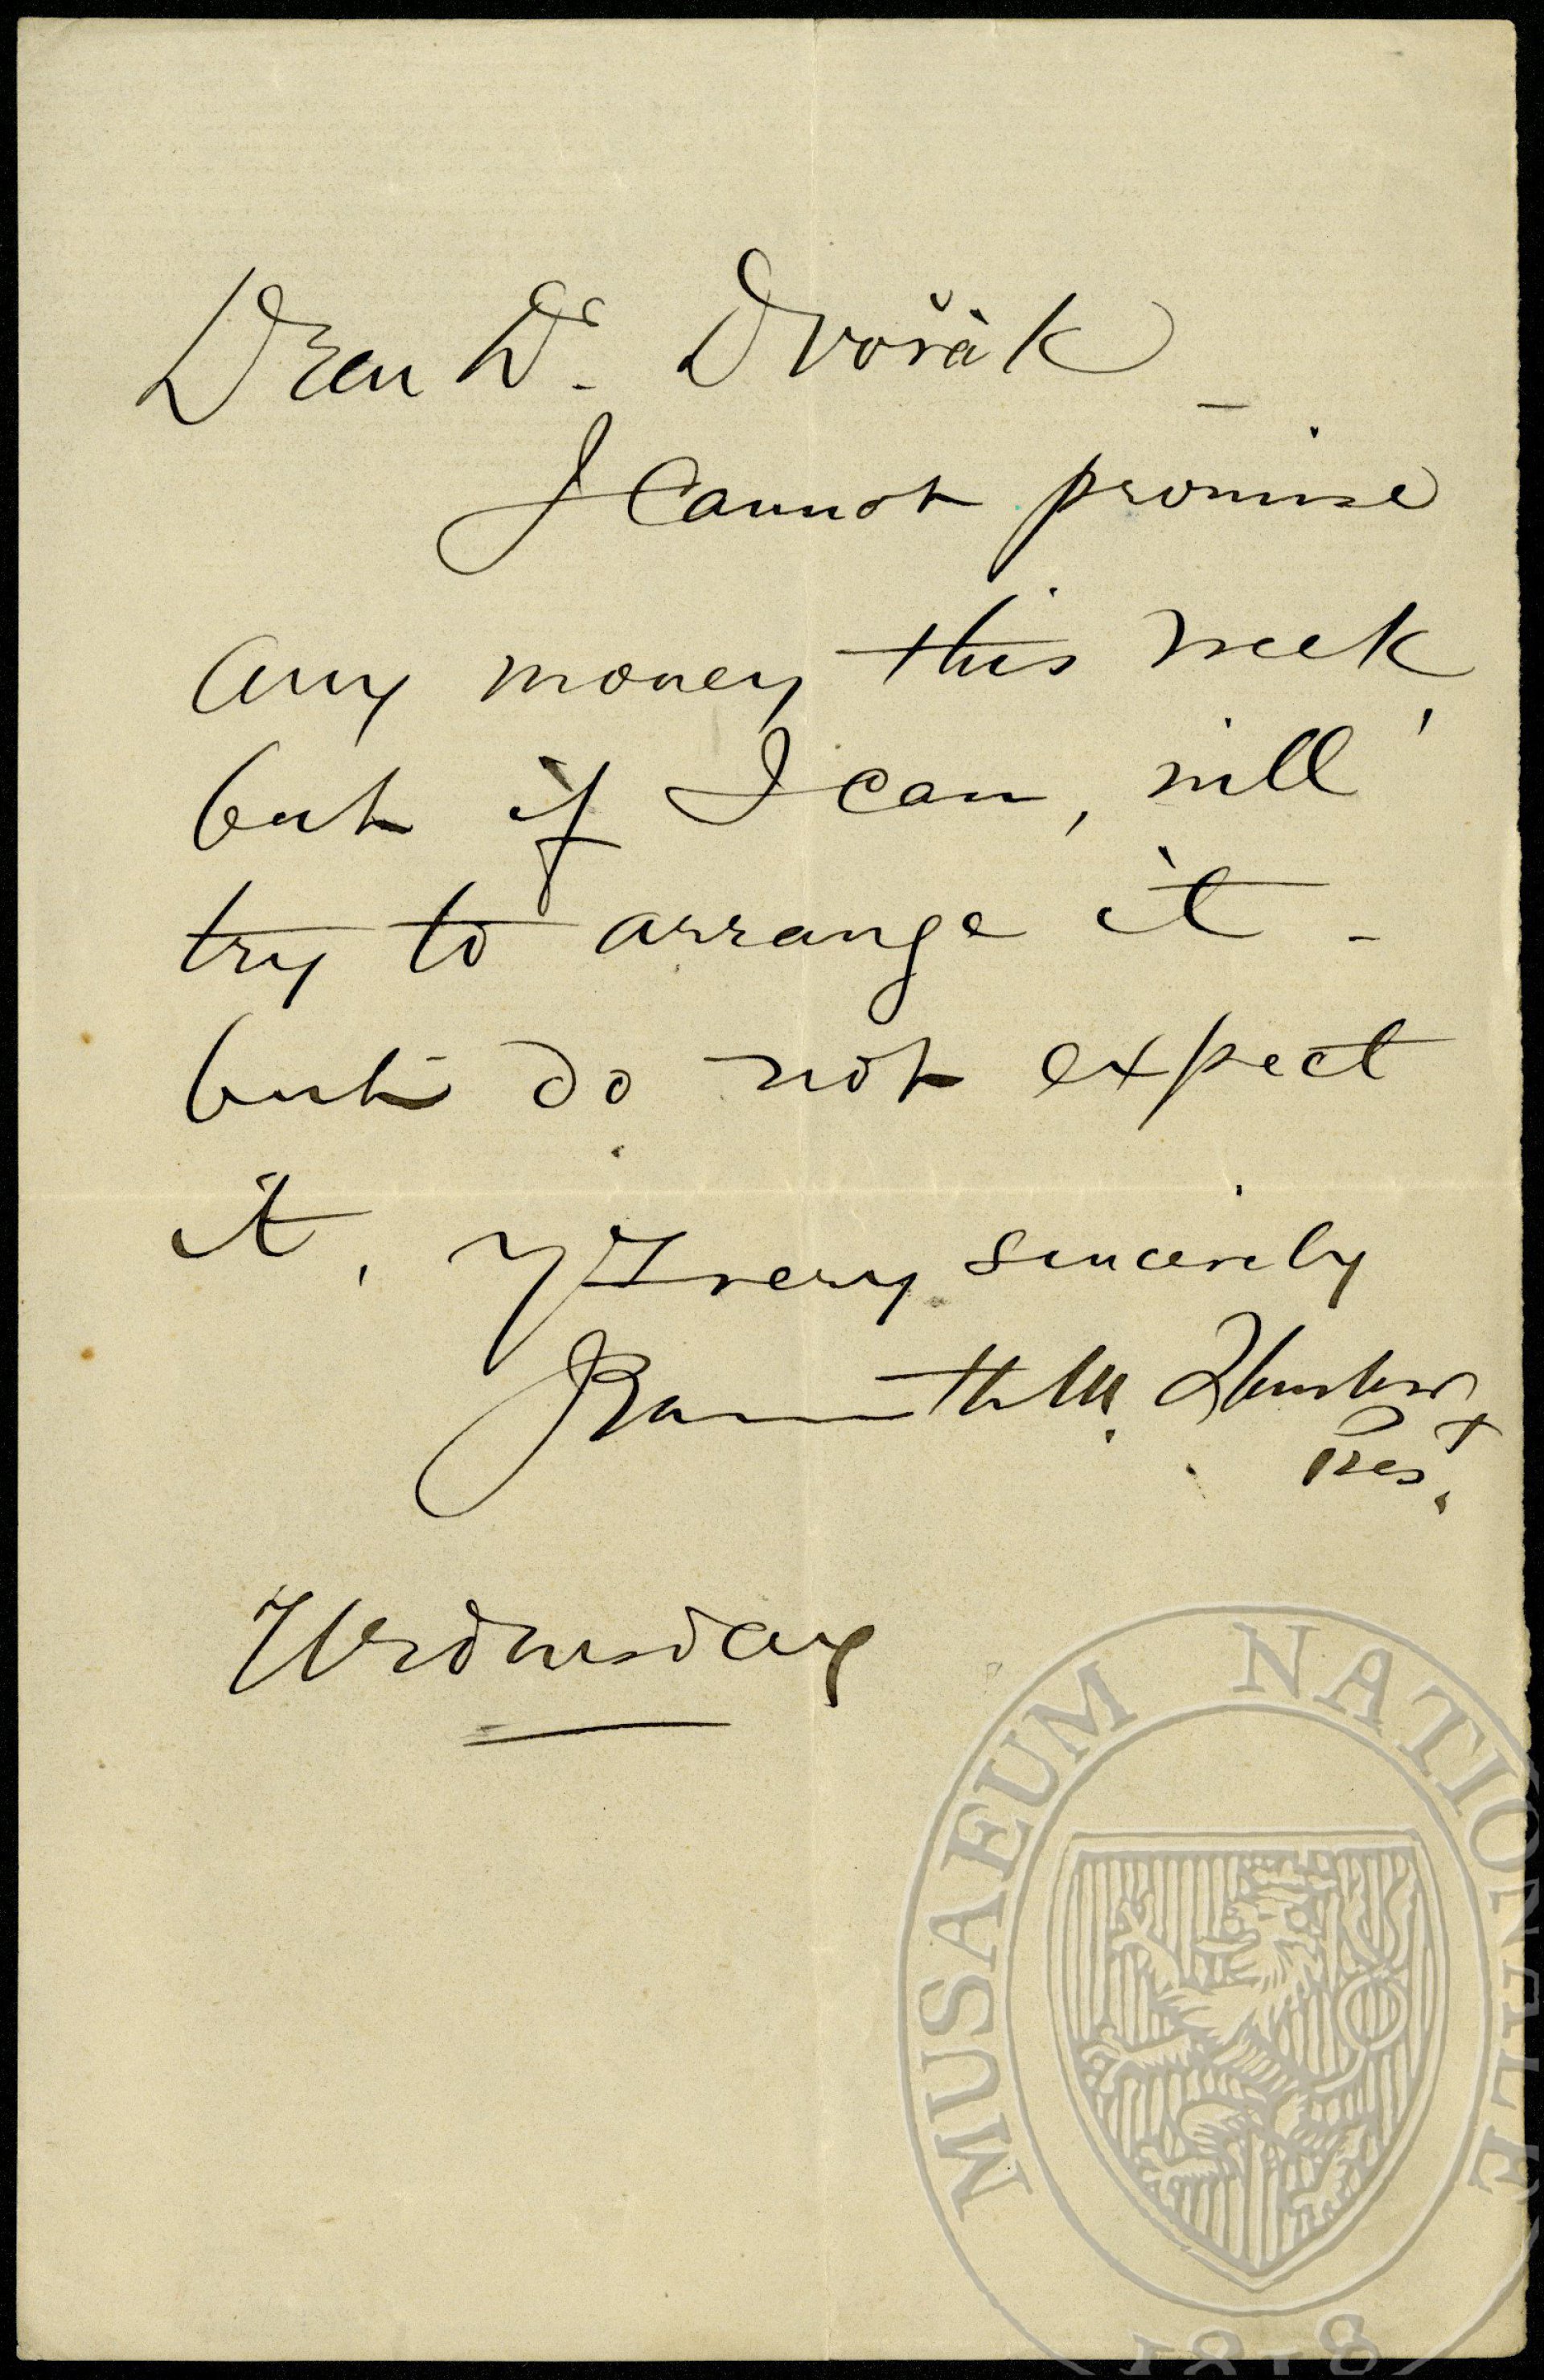 Dear Dr. Dvořák _
I Cannot promise
any money this week,
but if I can, will
try to arrange it -
but do not expect
it, Yrs very sincerely
Jeannette M. Thurber
Prest.
Wednesday
MUSAEUM NATIONALE
1818